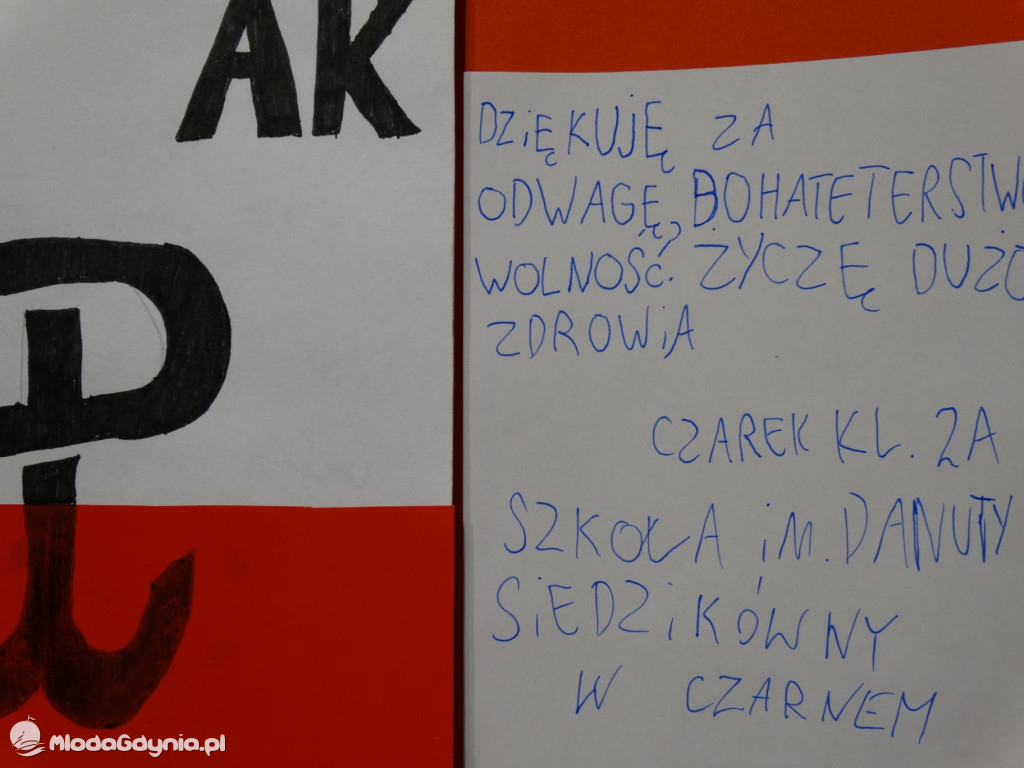 AK
DZIĘKUJĘ ZA
ODWAGĘ, BOHATETERSTWO
WOLNOŚĆ. ŻYCZĘ DUŻO
ZDROWIA
CZAREK KL. 2A
SZKOŁA im. DANUTY
SIEDZIKÓWNY
W CZARNEM
MlodaGdynia.pl